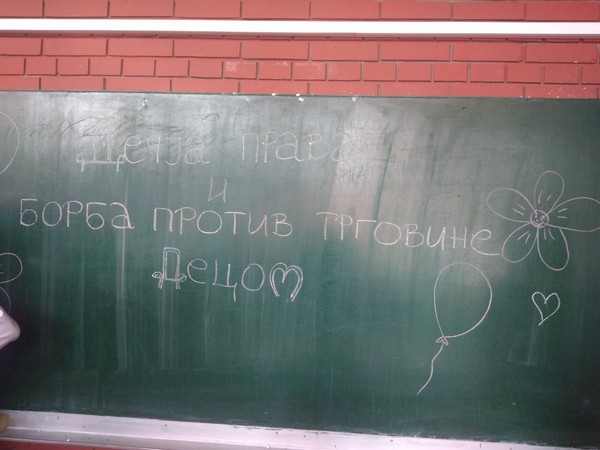 Дечја права
и
БОРБА ПРОТИВ ТРГОВИНЕ
Децом